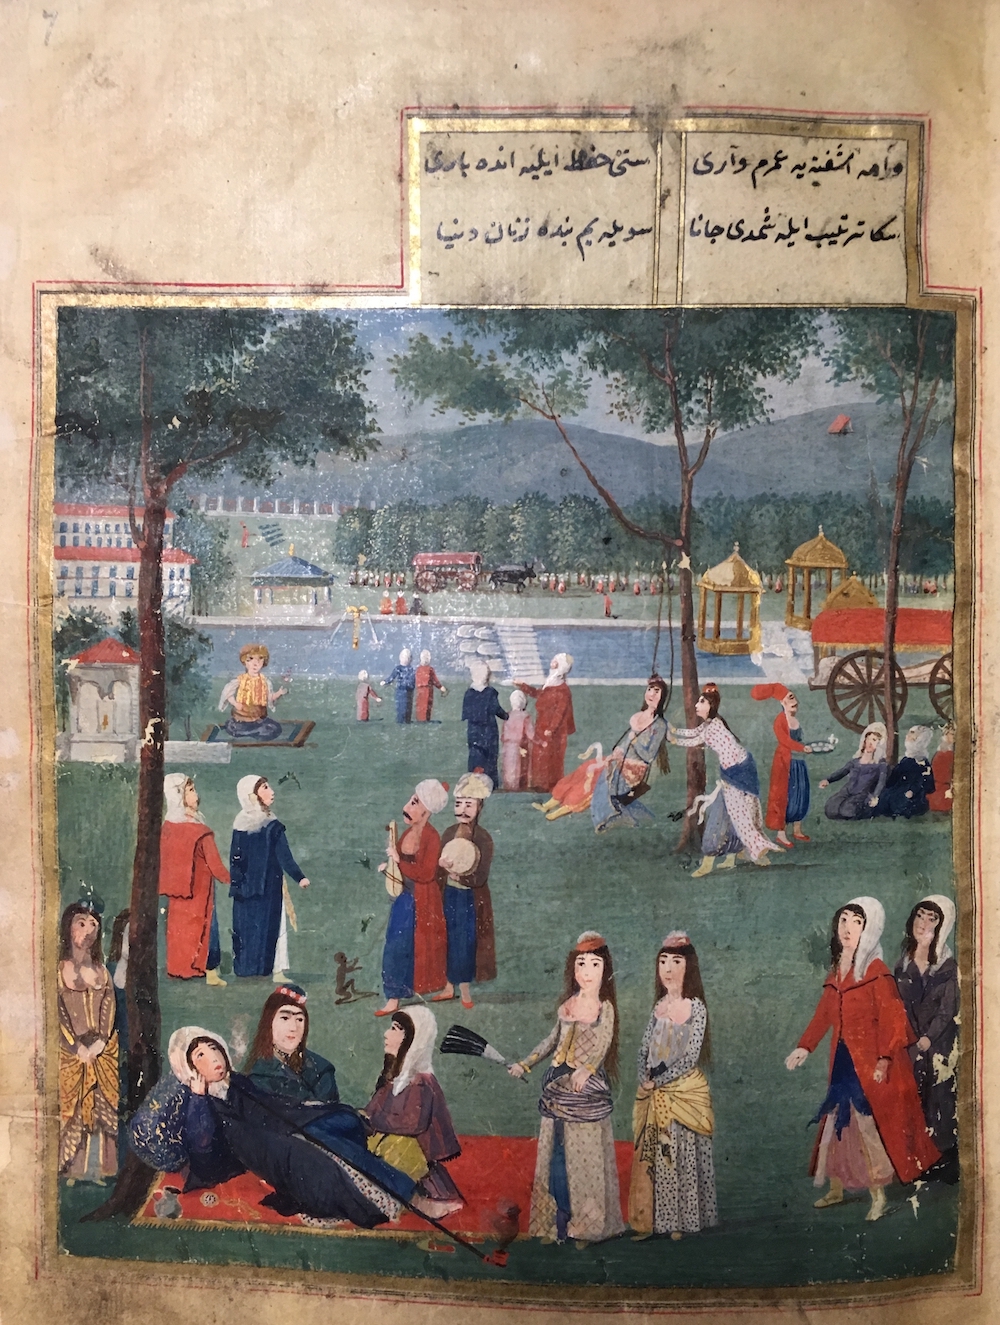 وارمه آشفته یه عمرم واری سنی حفظ ایلیه انده باری
سکا ترتیب ایله شمدی جانا سویله یم بنده زنان دنیا